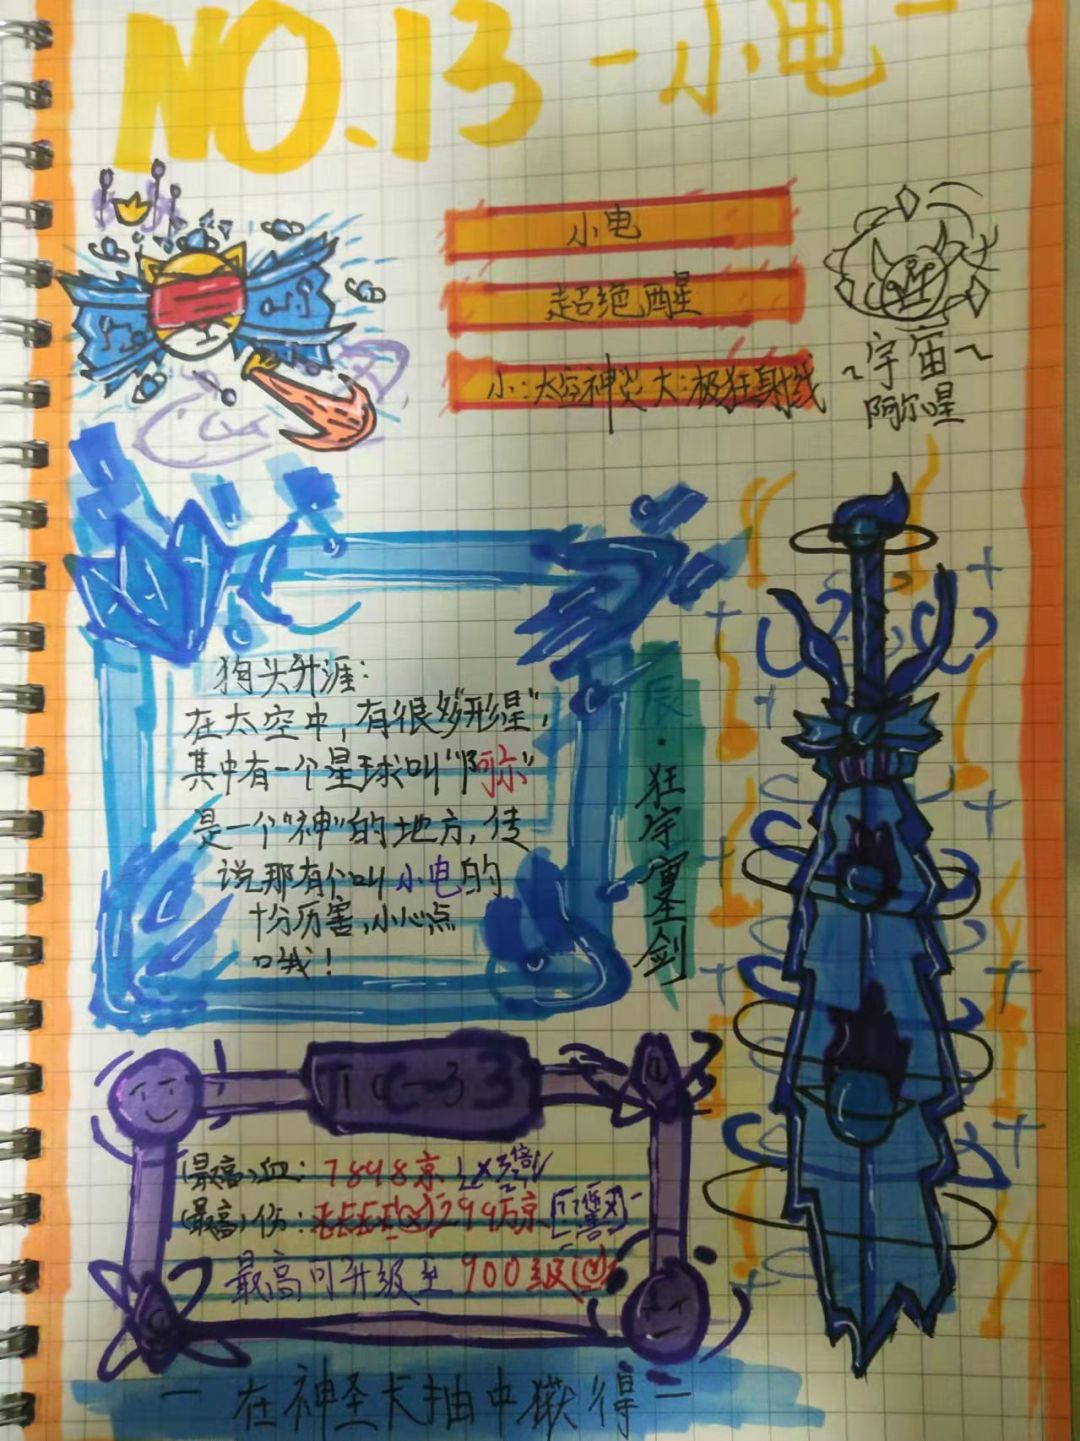 NO.13 -小电-
小电
超绝醒
小:太空神炎大:极狂射线
~宇宙~
阿尔星
狗头升涯:
在太空中,有很多"形星",
其中有一个星球叫"阿尔"
是一个"神"的地方,传
说那有个叫小电的
十分厉害,小心点
哦!
辰·狂宇宙圣剑
14-33
(最高)血:7898京
(最高)伤:299万京
最高可升级至900级
-在神圣卡抽中获得-